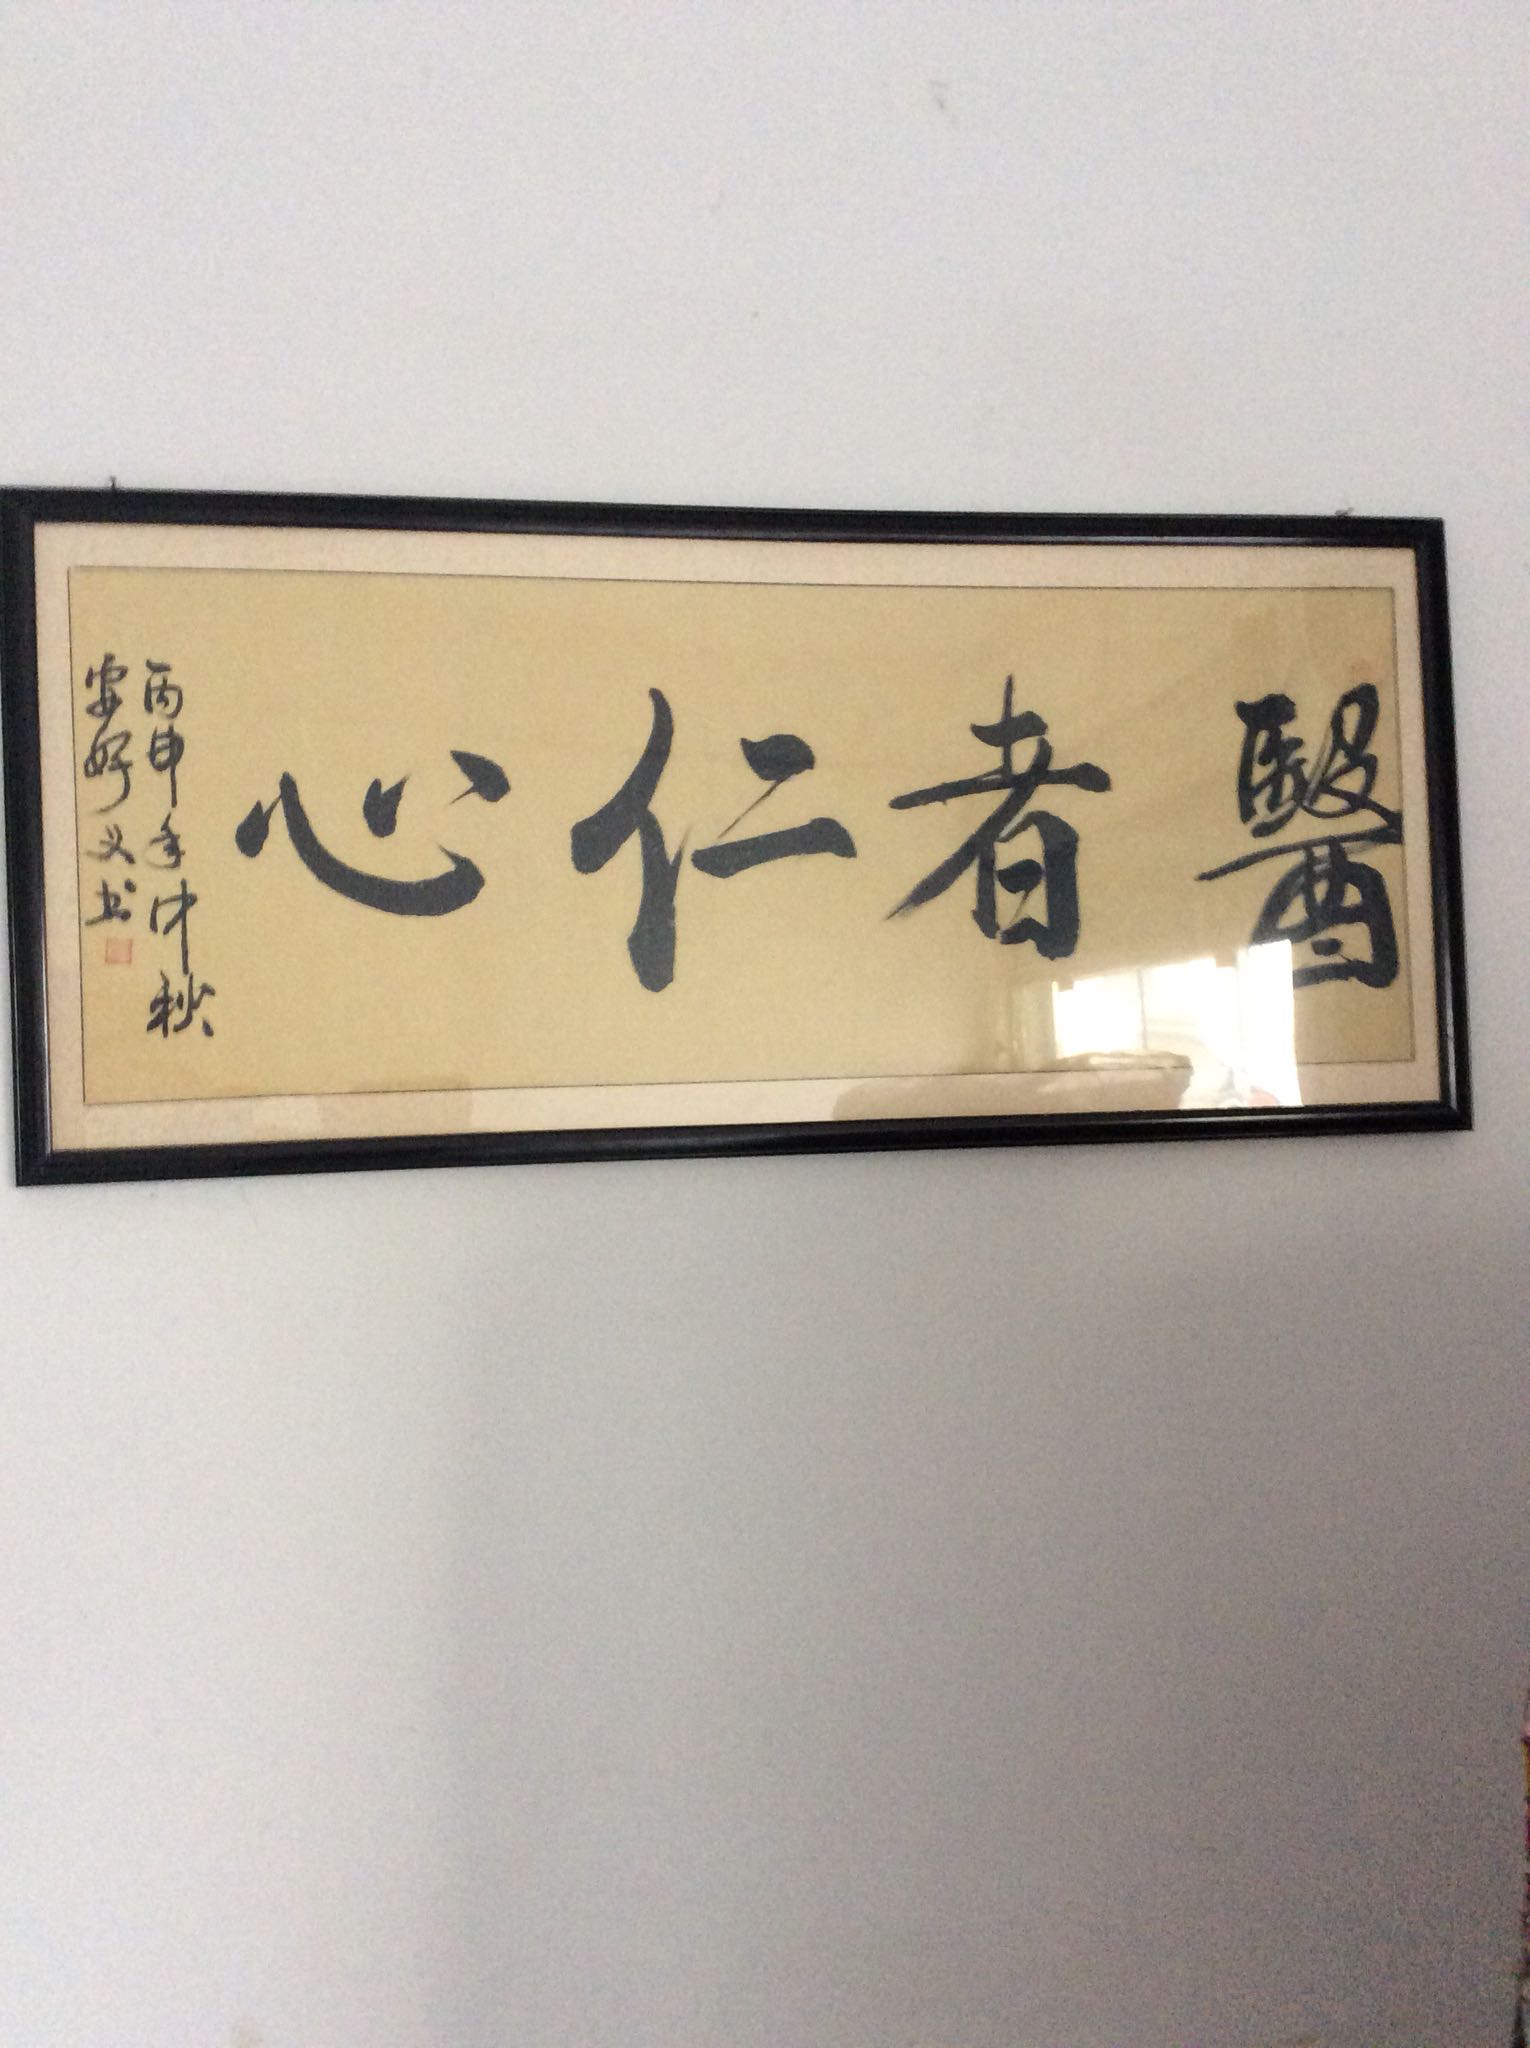 醫者仁心
丙申年仲秋
安好义书